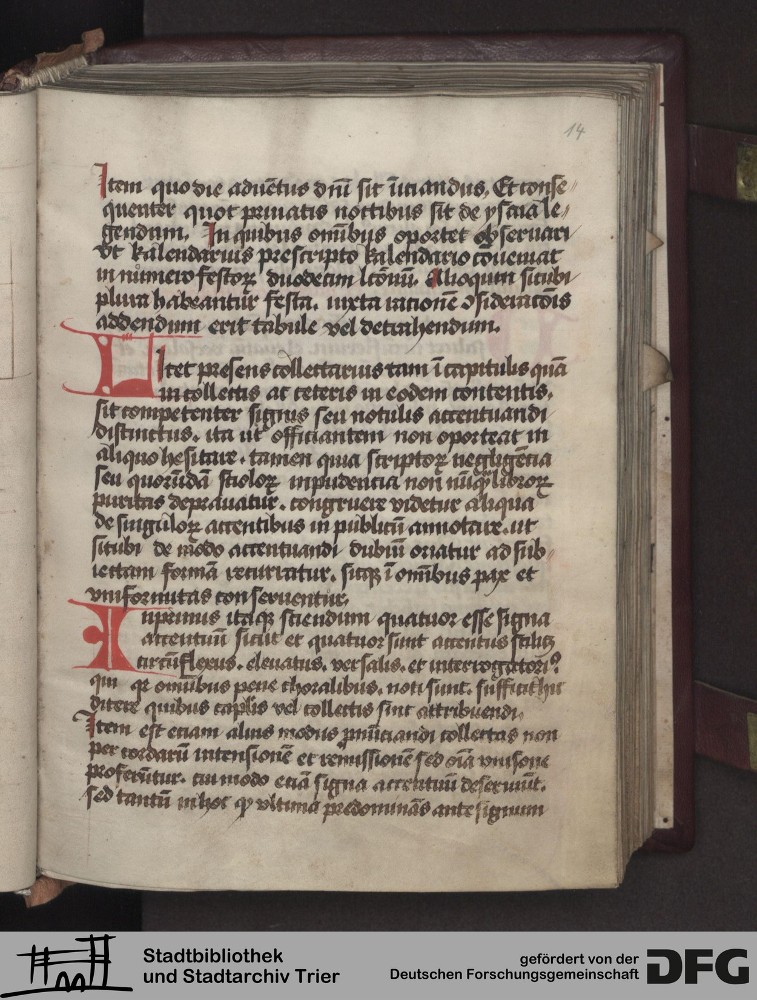 14
Item quo die aduētus dn̄i sit īciandus. Et conse⸗
quenter quot priuatis noctibus sit de ysaia le⸗
gendum. In quibus omībus oportet obseruari
vt kalendarius prescripto kalendario cōueniat
in numero festoꝝ duodecim lc̄onū. Alioquin sicubi
plura habeantur festa. iuxta racionē ↄsideracōis
addendum erit tabule vel detrahendum.
Licet presens collectarius tam ī capitulis quā
in collectis ac ceteris in eodem contentis.
sit competenter signis seu notulis accentuandi
distinctus. ita ut officiantem non oporteat in
aliquo hesitare. tamen quia scriptoꝝ negligēcia
seu quorūdā scioloꝝ inpudencia non nūqͣ libroꝝ
puritas deprauatur. congruere videtur aliqua
de singuloꝝ accentibus in publicū annotare. ut
sicubi de modo accentuandi dubiū oriatur ad sub⸗
iectam formā recurratur. sicqꝫ ī omībus pax et
vniformitas conseruentur.
Inprimis itaqꝫ sciendum quatuor esse signa
accentuū sicut et quatuor sunt accentus scilicꝫ
circūflexus. eleuatus. versalis. et interrogatori⁹
qui qꝛ omībus pene choralibus. noti sunt. sufficit hic
dicere quibus capl̄is vel collectis sint attribuendi.
Item est eciam alius modus ꝓnūciandi collectas non
per cordarū intensionē et remissionē sed oīa vnisone
proferūtur. cui modo eciā signa accentuū deseruiūt.
sed tantū in hoc qꝫ vltima predominās ante signum
Stadtbibliothek
und Stadtarchiv Trier
gefördert von der
Deutschen Forschungsgemeinschaft
DFG